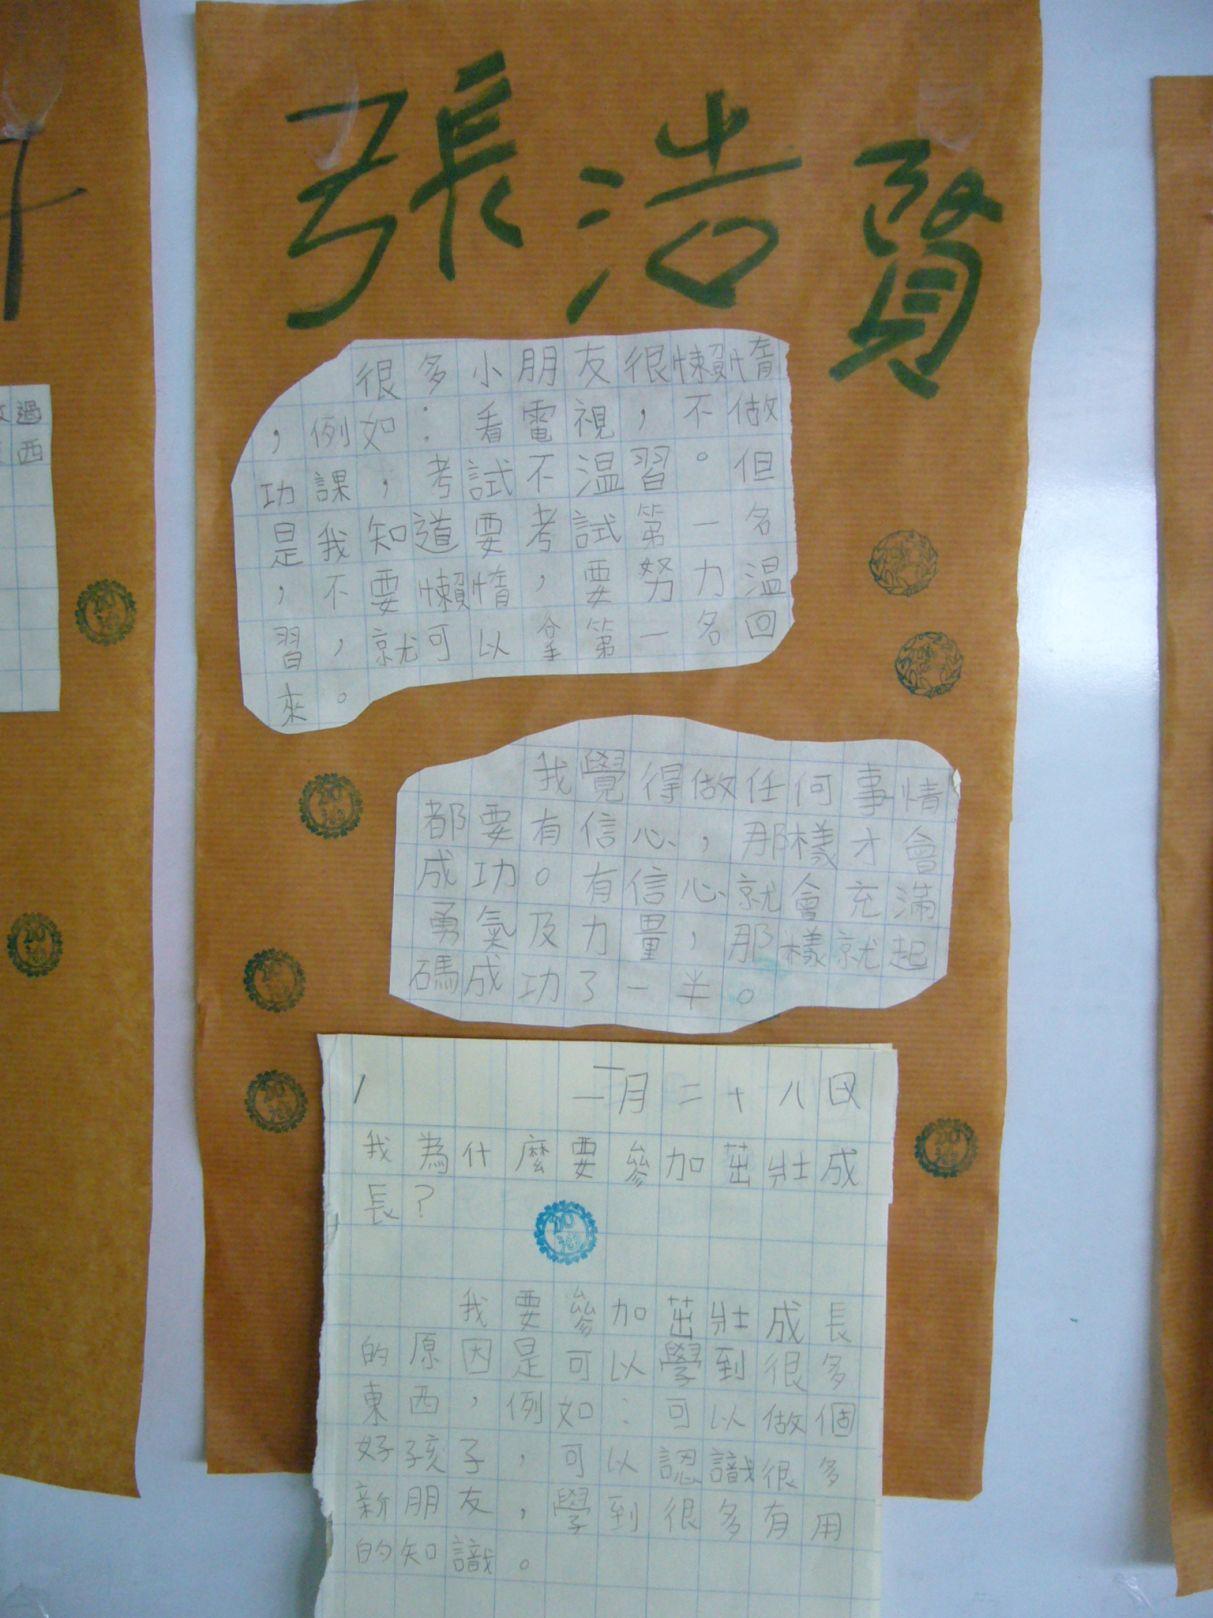 張浩賢
很多小朋友很懶惰
，例如：看電視，不做
功課，考試不溫習。但
是我知道要考試第一名
，不要懶惰，要努力溫
習，就可以拿第一名回
來。
我覺得做任何事情
都要有信心，那樣才會
成功。有信心就會充滿
勇氣及力量，那樣就起
碼成功了一半。
月二十八日
我為什麼要參加茁壯成
長？
我要參加茁壯成長
的原因是可以學到很多
東西，例如：可以做個
好孩子，可以認識很多
新朋友，學到很多有用
的知識。
過
西